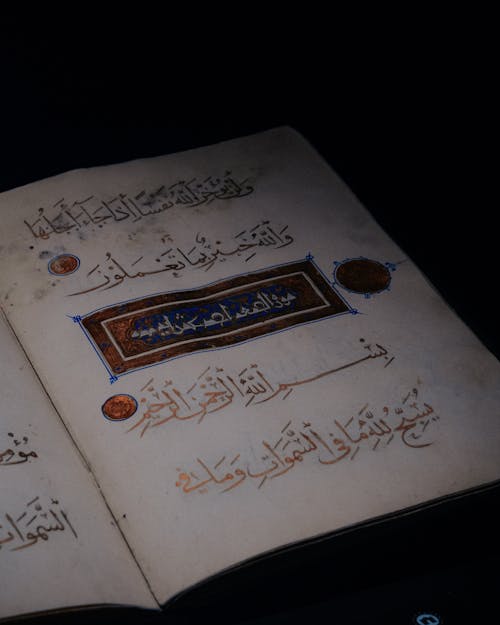 وَلَنْ يُؤَخِّرَ اللَّهُ نَفْسًا إِذَا جَاءَ أَجَلُهَا
وَاللَّهُ خَبِيرٌ بِمَا تَعْمَلُونَ
سورة
بِسْمِ اللَّهِ الرَّحْمَنِ الرَّحِيمِ
يُسَبِّحُ لِلَّهِ مَا فِي السَّمَوَاتِ وَمَا فِي
السَّمَوَاتِ